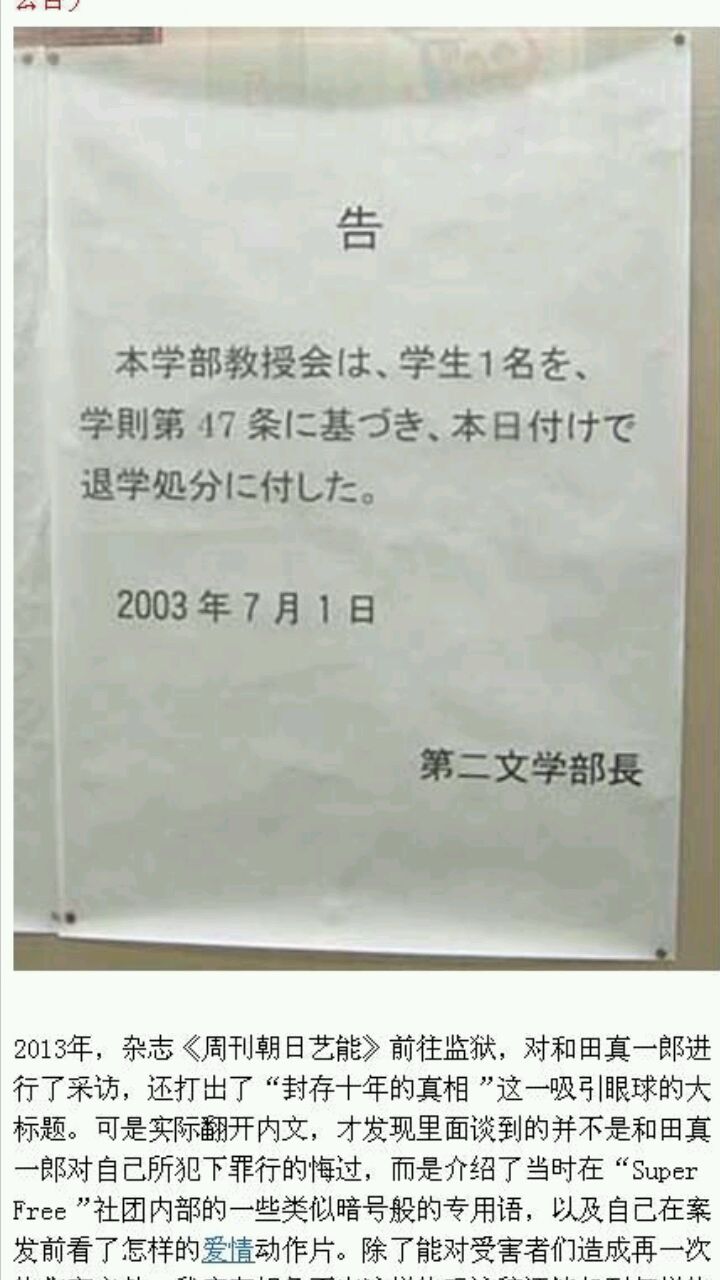 告
本学部教授会は、学生１名を、
学則第 47 条に基づき、本日付けで
退学処分に付した。
2003 年 7 月 1 日
第二文学部長
2013年，杂志《周刊朝日艺能》前往监狱，对和田真一郎进
行了采访，还打出了“封存十年的真相”这一吸引眼球的大
标题。可是实际翻开内文，才发现里面谈到的并不是和田真
一郎对自己所犯下罪行的悔过，而是介绍了当时在“Super
Free”社团内部的一些类似暗号般的专用语，以及自己在案
发前看了怎样的爱情动作片。除了能对受害者们造成再一次